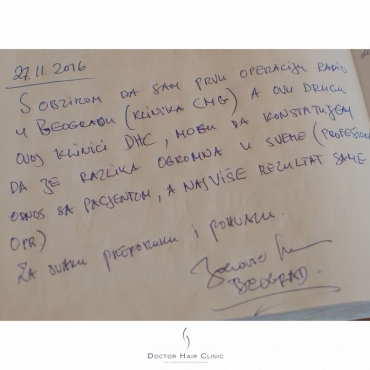 27.11.2016
S OBZIROM DA SAM PRVU OPERACIJU RADIO
U BEOGRADU (KLINIKA CMG) A OVU DRUGU
OVOJ KLINICI DHC, MOGU DA KONSTATUJEM
DA JE RAZLIKA OGROMNA U SVEMU (PROFESION
ODNOS SA PACJENTOM, A NAJVIŠE REZULTAT SAME
OPR)
ZA SVAKU PREPORUKU I POHVALU.
BEOGRAD.
DOCTOR HAIR CLINIC